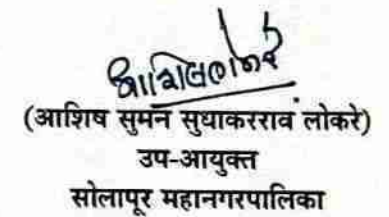 आशिषलोकरे
(आशिष सुमन सुधाकरराव लोकरे)
उप-आयुक्त
सोलापूर महानगरपालिका